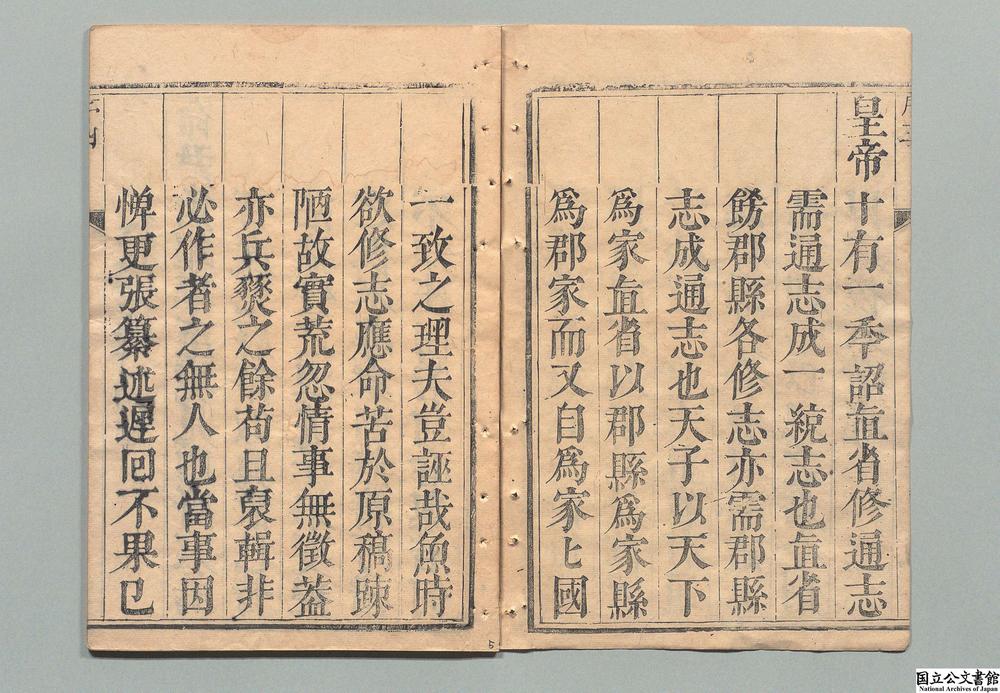 皇帝十有一季詔直省修通志
需通志成一統志也直省
餝郡縣各修志亦需郡縣
志成通志也天子以天下
爲家直省以郡縣爲家縣
爲郡家而又自爲家匕國
一致之理夫豈誣哉魚時
欲修志應命苦於原稿踈
陋故實荒忽情事無徵葢
亦兵燹之餘苟且裒輯非
必作者之無人也當事因
憚更張纂述遲回不果已
序四
5
国立公文書館
National Archives of Japan